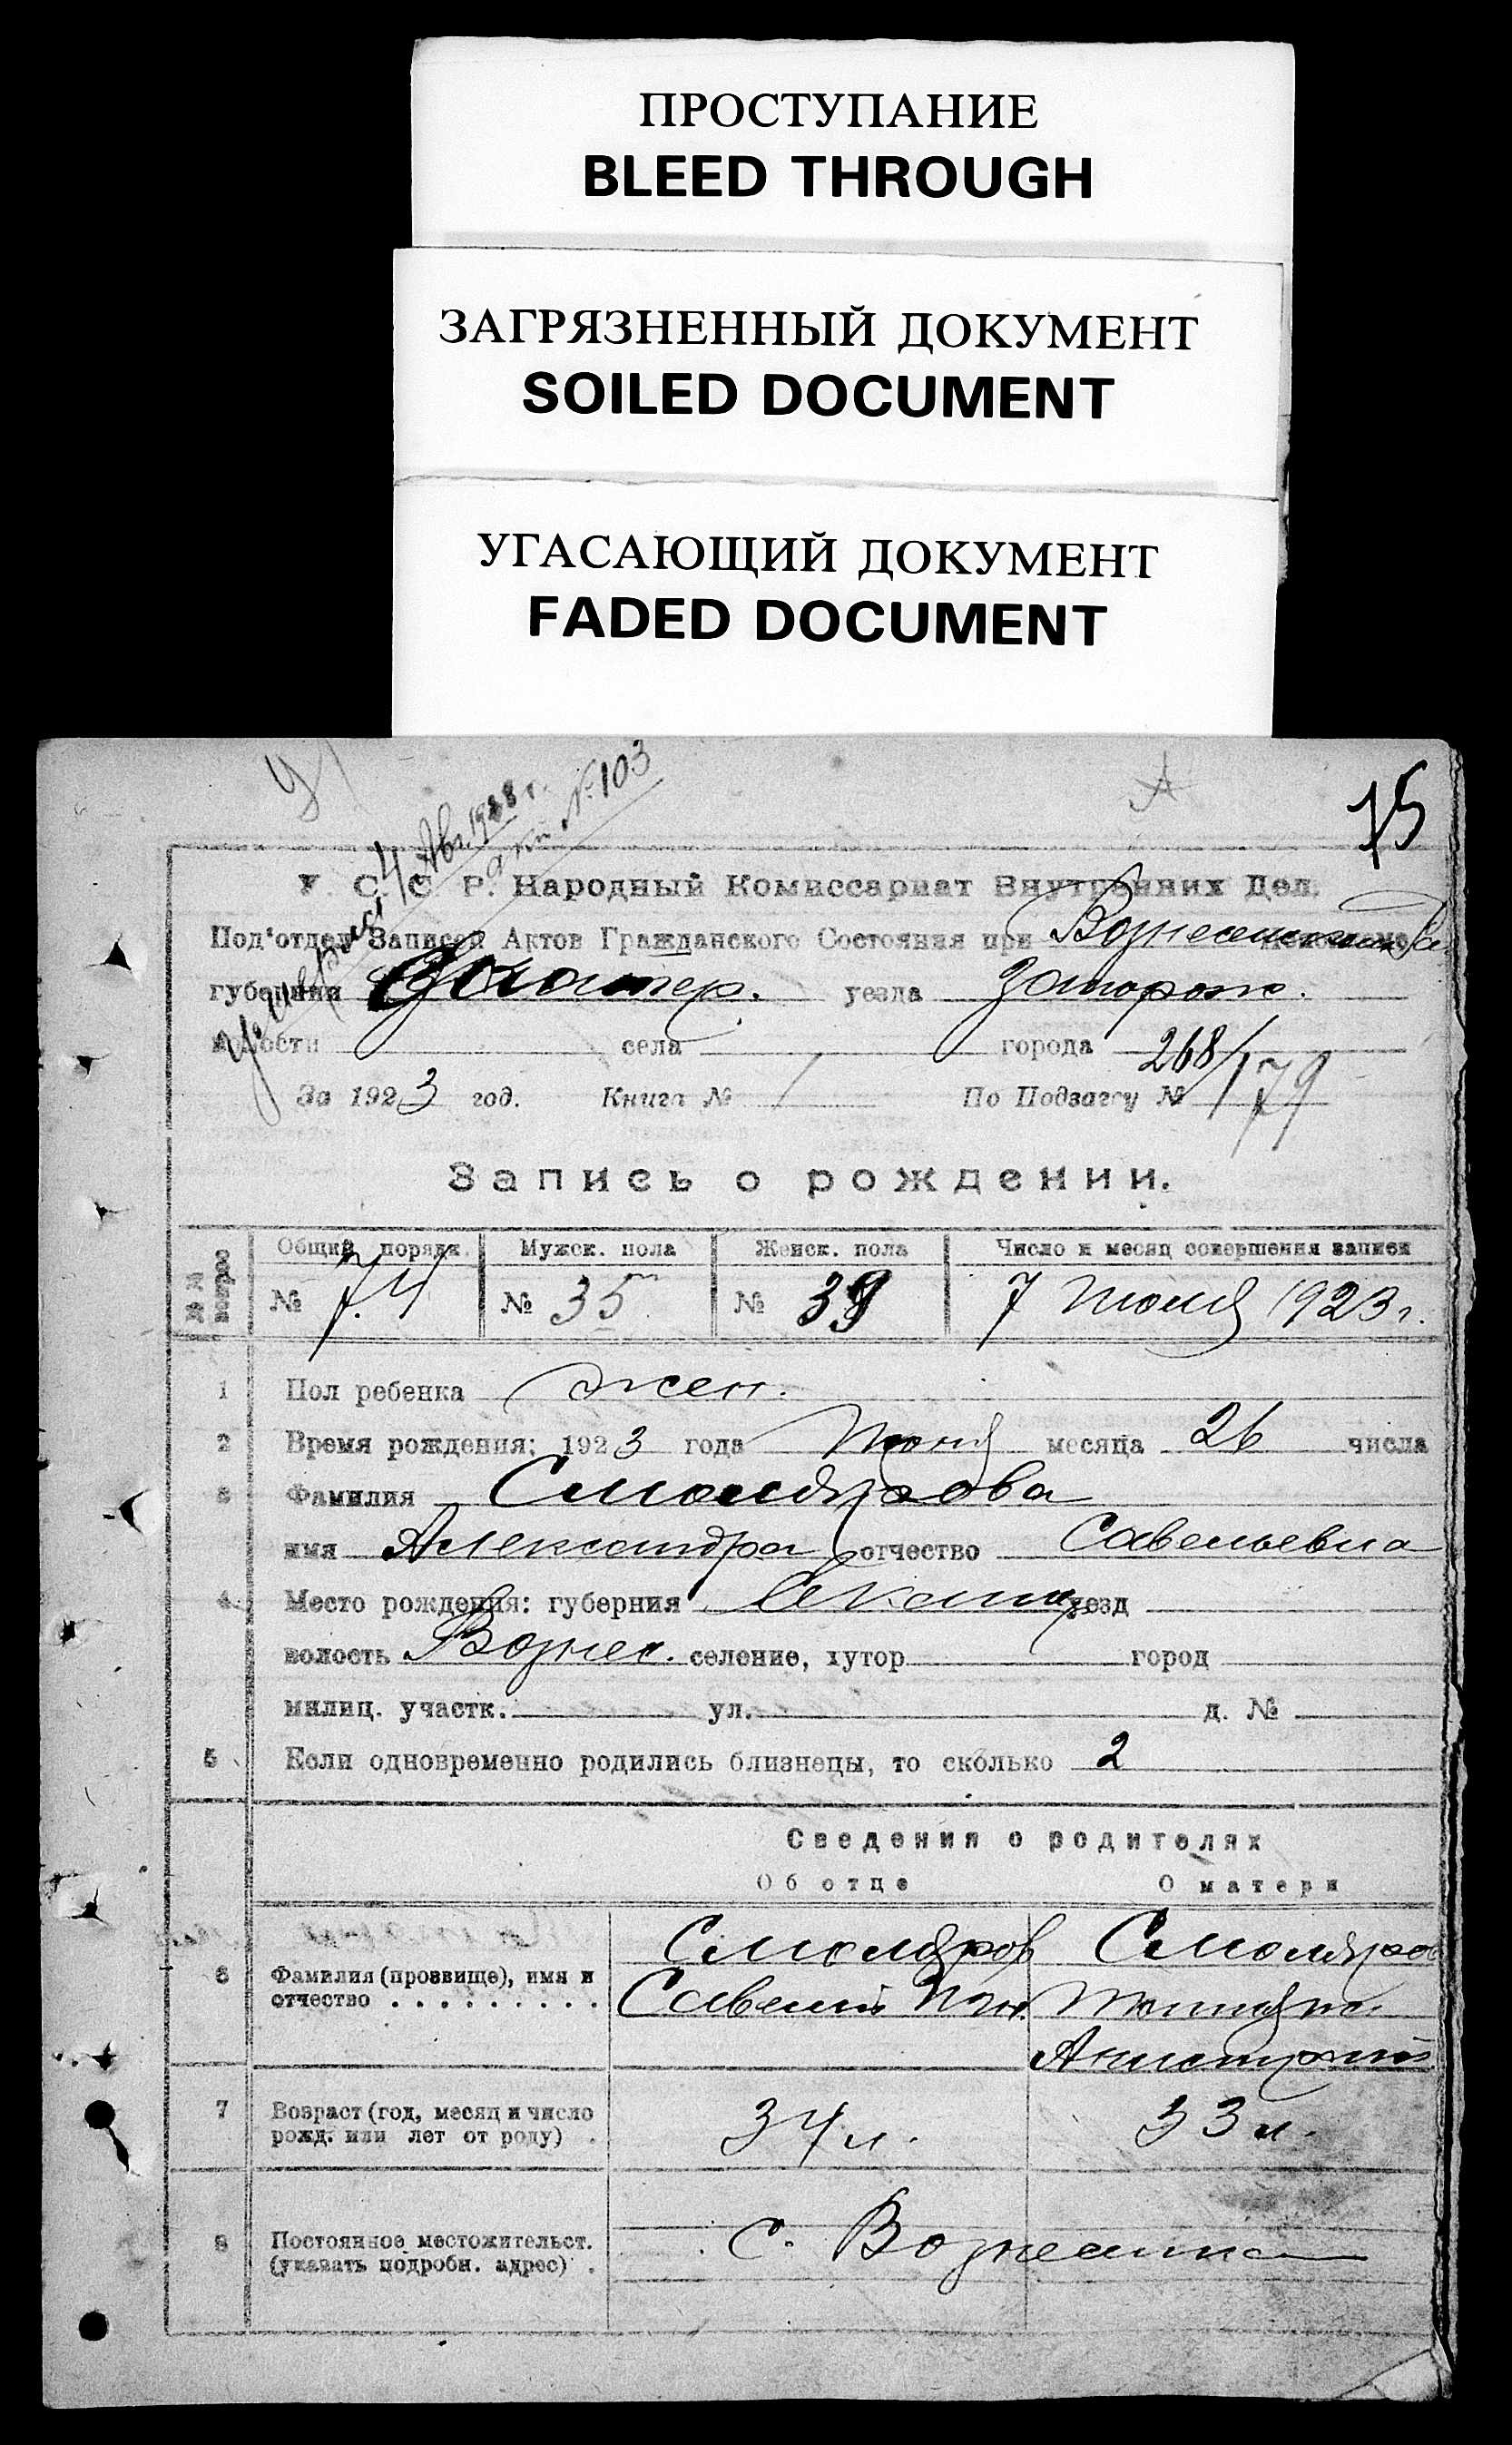 ПРОСТУПАНИЕ
BLEED THROUGH
ЗАГРЯЗНЕННЫЙ ДОКУМЕНТ
SOILED DOCUMENT
УГАСАЮЩИЙ ДОКУМЕНТ
FADED DOCUMENT
75
4 Авг. 1928 г.
акт № 103
У. С. С. Р. Народный Комиссариат Внутренних Дел.
Под'отдел Записей Актов Гражданского Состояния при
губернии Екатер. уезда Запорож.
волости села города
268/179
За 1923 год. Книга № По Подзагсу №
Запись о рождении.
№№ вопрос Общий порядк. Мужск. пола Женск. пола Число и месяц совершения записи
№ 74 № 35 № 39 7 Июля 1923 г.
1 Пол ребенка жен.
2 Время рождения: 1923 года Июня месяца 26 числа
3 Фамилия Смолярова
имя Александра отчество Савельевна
4 Место рождения: губерния Екатер уезд
волость Вознес. селение, хутор город
милиц. участк. ул. д. №
5 Если одновременно родились близнецы, то сколько 2
Сведения о родителях
Об отце О матери
6 Фамилия (прозвище), имя и отчество Смоляров Савелий Смоляров
7 Возраст (год, месяц и число рожд. или лет от роду) 34 л. 33 л.
8 Постоянное местожительст. (указать подробн. адрес) с. Вознесенка